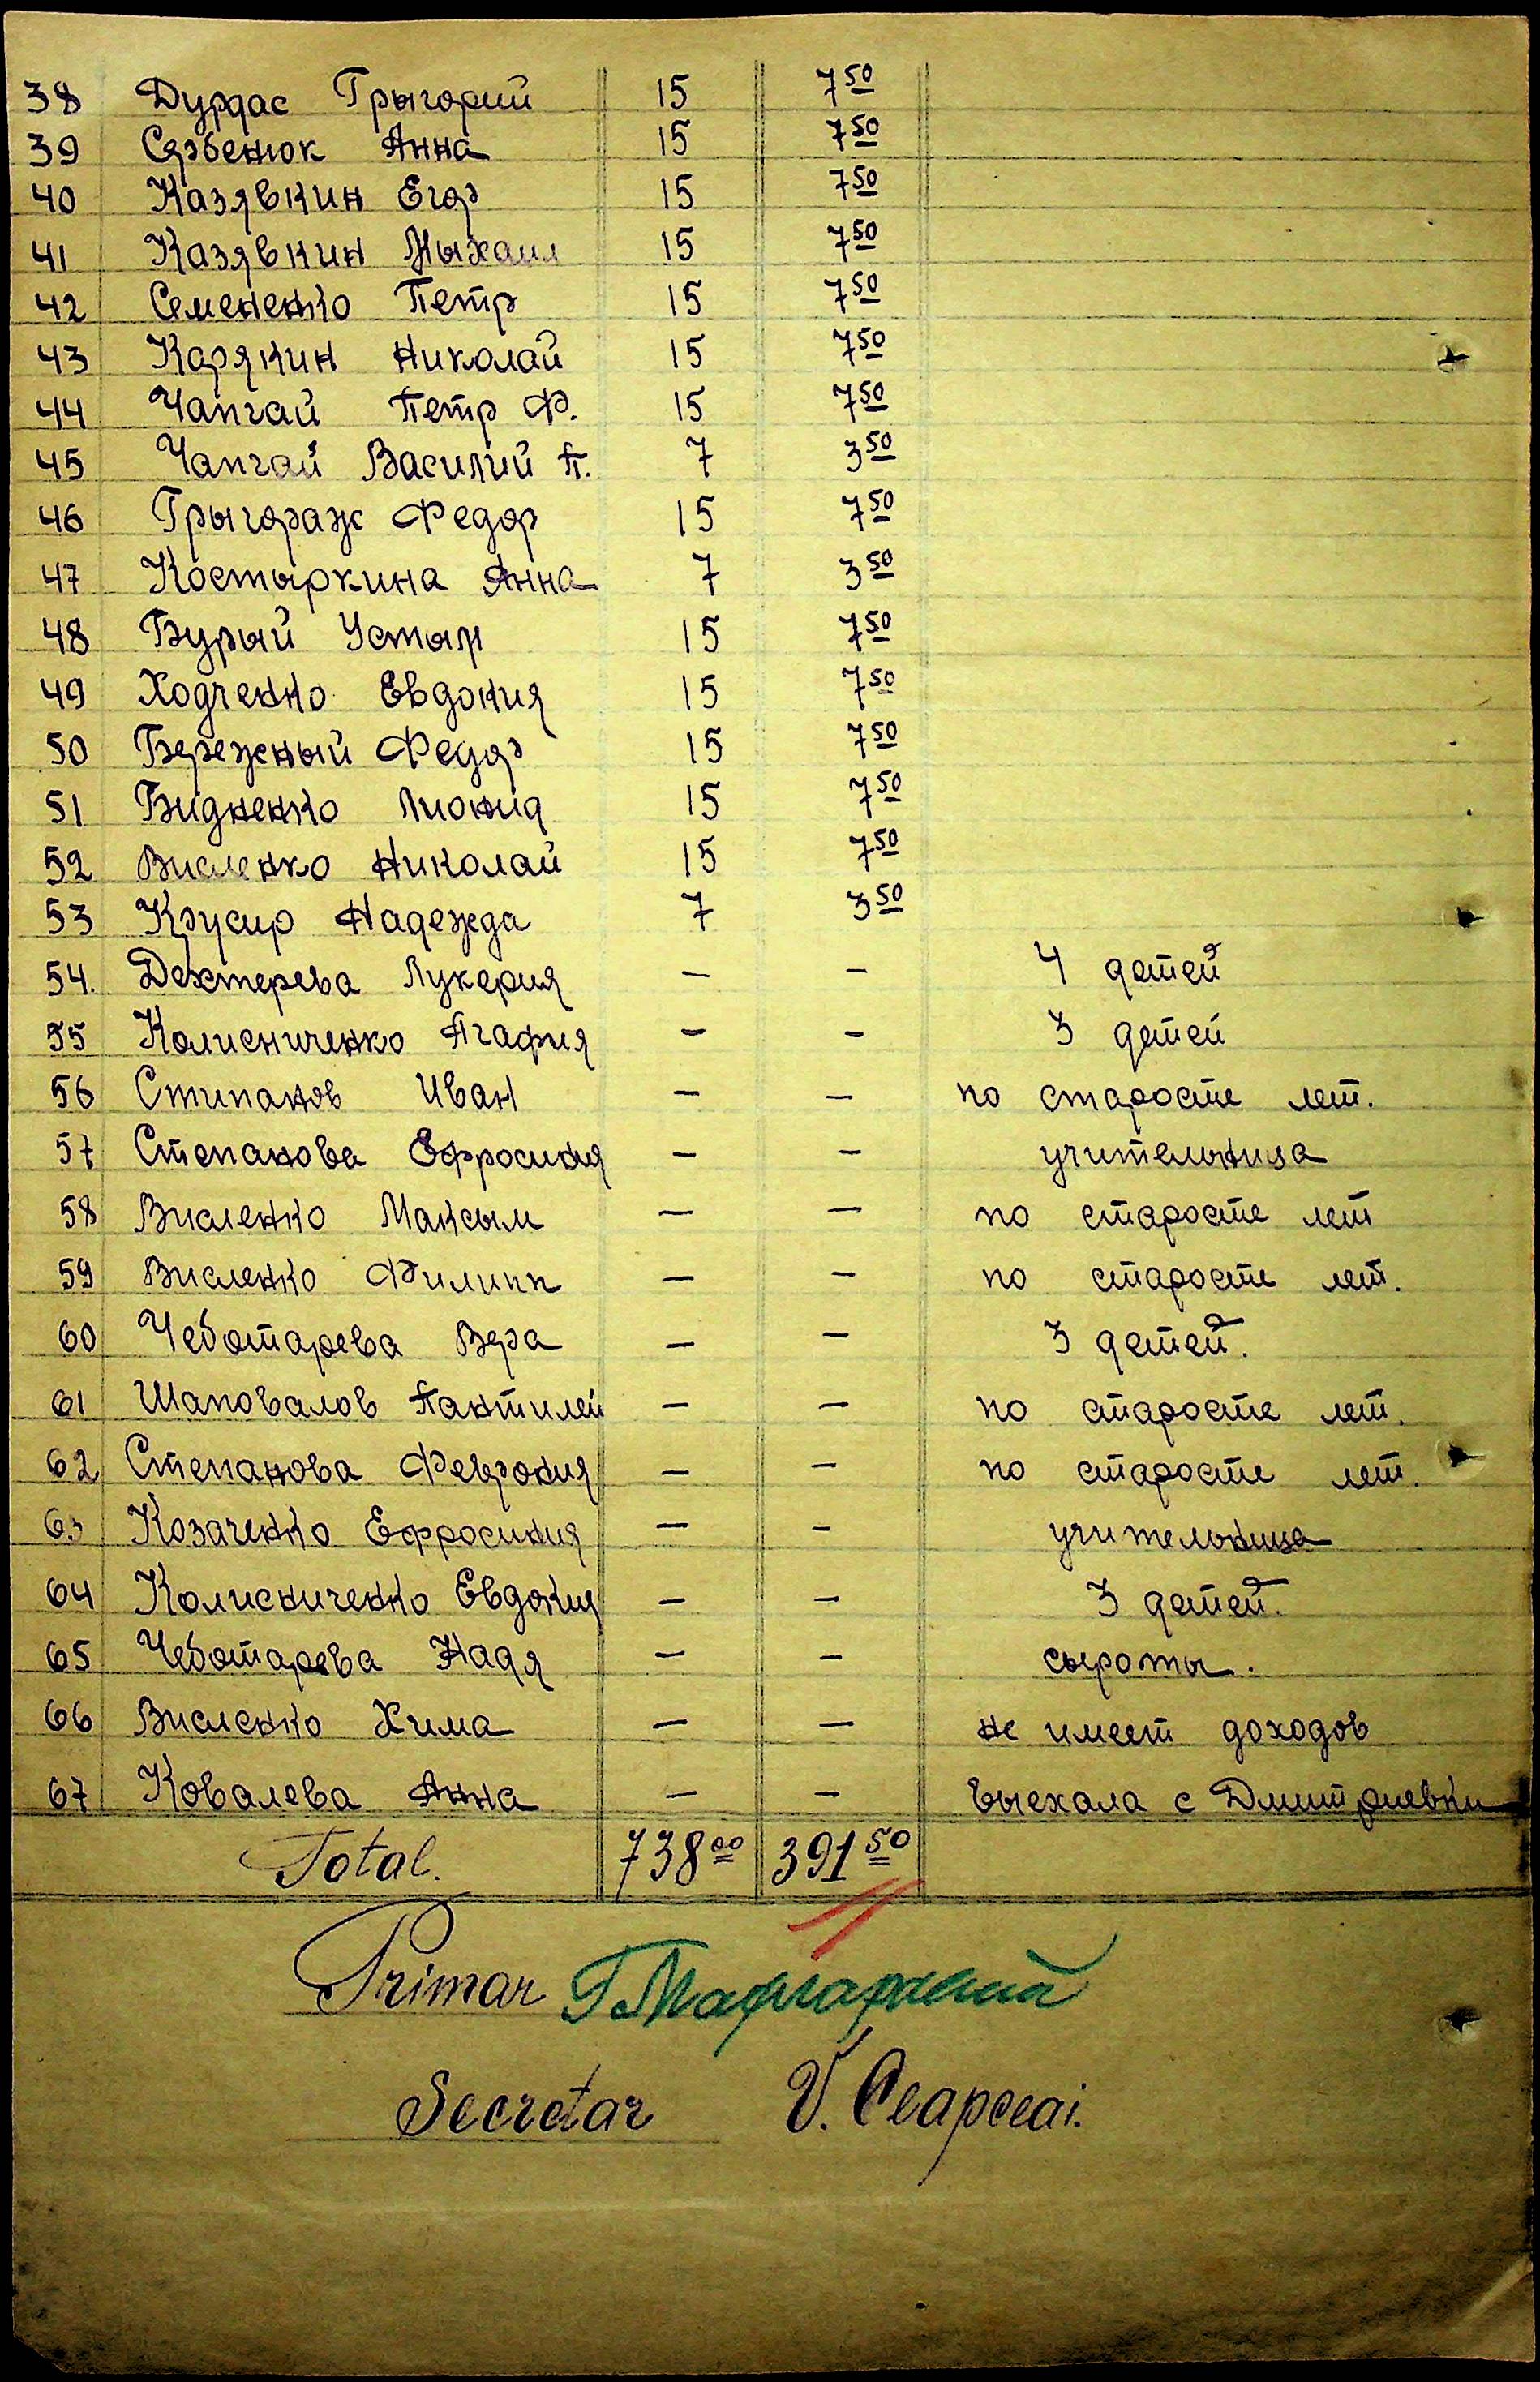 38 Дурдас Грыгорий 15 7 50
39 Сярбенюк Анна 15 7 50
40 Казявкин Егор 15 7 50
41 Казявкин Мыхаил 15 7 50
42 Семененко Петр 15 7 50
43 Карякин Николай 15 7 50
44 Чапгай Петр Ф. 15 7 50
45 Чапгай Василий П. 7 3 50
46 Грыгораж Федор 15 7 50
47 Костыркина Анна 7 3 50
48 Бурый Устым 15 7 50
49 Ходченко Евдокия 15 7 50
50 Бережный Федор 15 7 50
51 Бидненко Лионид 15 7 50
52 Висленко Николай 15 7 50
53 Крусир Надежда 7 3 50
54. Дехтерева Лукерия — — 4 детей
55 Колисниченко Агафия — — 3 детей
56 Стипанов Иван — — по старости лет.
57 Степанова Ефросиния — — учительница
58 Висленко Максым — — по старости лет
59 Висленко Филипп — — по старости лет.
60 Чеботарева Вера — — 3 детей.
61 Шаповалов Пантилей — — по старости лет.
62 Степанова Феврония — — по старости лет.
63 Козаченко Ефросиния — — учительница
64 Колисниченко Евдокия — — 3 детей.
65 Чеботарева Надя — — сыроты.
66 Висленко Хима — — не имеет доходов
67 Ковалева Анна — — выехала с Дмитриевки
Total. 738 00 391 50
Primar
Secretar V. Ceapceai.